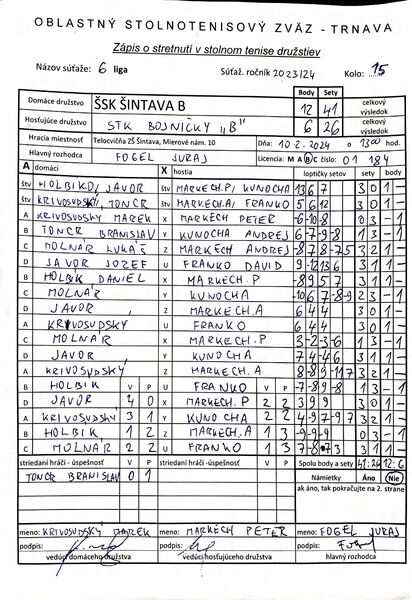 OBLASTNÝ STOLNOTENISOVÝ ZVÄZ - TRNAVA
Zápis o stretnutí v stolnom tenise družstiev
Názov súťaže: 6 liga Súťaž. ročník 2023/24 Kolo: 15
Body Sety
Domáce družstvo ŠSK ŠINTAVA B 12 41 celkový výsledok
Hosťujúce družstvo STK BOJNIČKY "B" 6 26 celkový výsledok
Hracia miestnosť Telocvičňa ZŠ Šintava, Mierové nám. 10 Dňa: 10.2.2024 o 1300 hod.
Hlavný rozhodca FOGEL JURAJ Licencia: M A B C číslo: 01 184
A domáci X hostia loptičky setov sety body
štv HOLBIK D, JAVOR štv MARKECH.P, KUNOCHA 13 6 7 3 0 1 -
štv KRIVOSUDSKÝ, TONCR štv MARKECH A, FRANKO 5 6 12 3 0 1 -
A KRIVOSUDSKÝ MAREK X MARKECH PETER -6 -10 -8 0 3 - 1
B TONCR BRANISLAV Y KUNOCHA ANDREJ -6 -7 -9 -8 1 3 - 1
C MOLNÁR LUKÁŠ Z MARKECH ANDREJ -8 7 8 -7 5 3 2 1 -
D JAVOR JOZEF U FRANKO DAVID 9 -12 13 6 3 1 1 -
B HOLBIK DANIEL X MARKECH.P -8 9 5 7 3 1 1 -
C MOLNÁR Y KUNOCHA -10 6 7 -8 -9 2 3 - 1
D JAVOR Z MARKECH.A 6 4 4 3 0 1 -
A KRIVOSUDSKÝ U FRANKO 6 4 4 3 0 1 -
C MOLNÁR X MARKECH.P -3 -2 3 -6 1 3 - 1
D JAVOR Y KUNOCHA 7 4 -4 6 3 1 1 -
A KRIVOSUDSKÝ Z MARKECH.A 8 -8 9 -11 7 3 2 1 -
B HOLBIK V P U FRANKO V P -7 -8 9 -8 1 3 - 1
D JAVOR 4 0 X MARKECH.P 2 2 3 9 9 3 0 1 -
A KRIVOSUDSKÝ 3 1 Y KUNOCHA 2 2 4 -9 7 -9 7 3 2 1 -
B HOLBIK 1 2 Z MARKECH.A 1 3 -9 -9 -9 0 3 - 1
C MOLNÁR 2 2 U FRANKO 1 3 7 -8 7 3 3 1 1 -
striedaní hráči - úspešnosť V P striedaní hráči - úspešnosť V P Spolu body a sety 41:26 12:6
TONCR BRANISLAV 0 1 Námietky Áno Nie
ak áno, tak pokračujte na 2. strane
meno: KRIVOSUDSKÝ MAREK meno: MARKECH PETER meno: FOGEL JURAJ
podpis: podpis: podpis: Fogel
vedúci domáceho družstva vedúci hosťujúceho družstva hlavný rozhodca